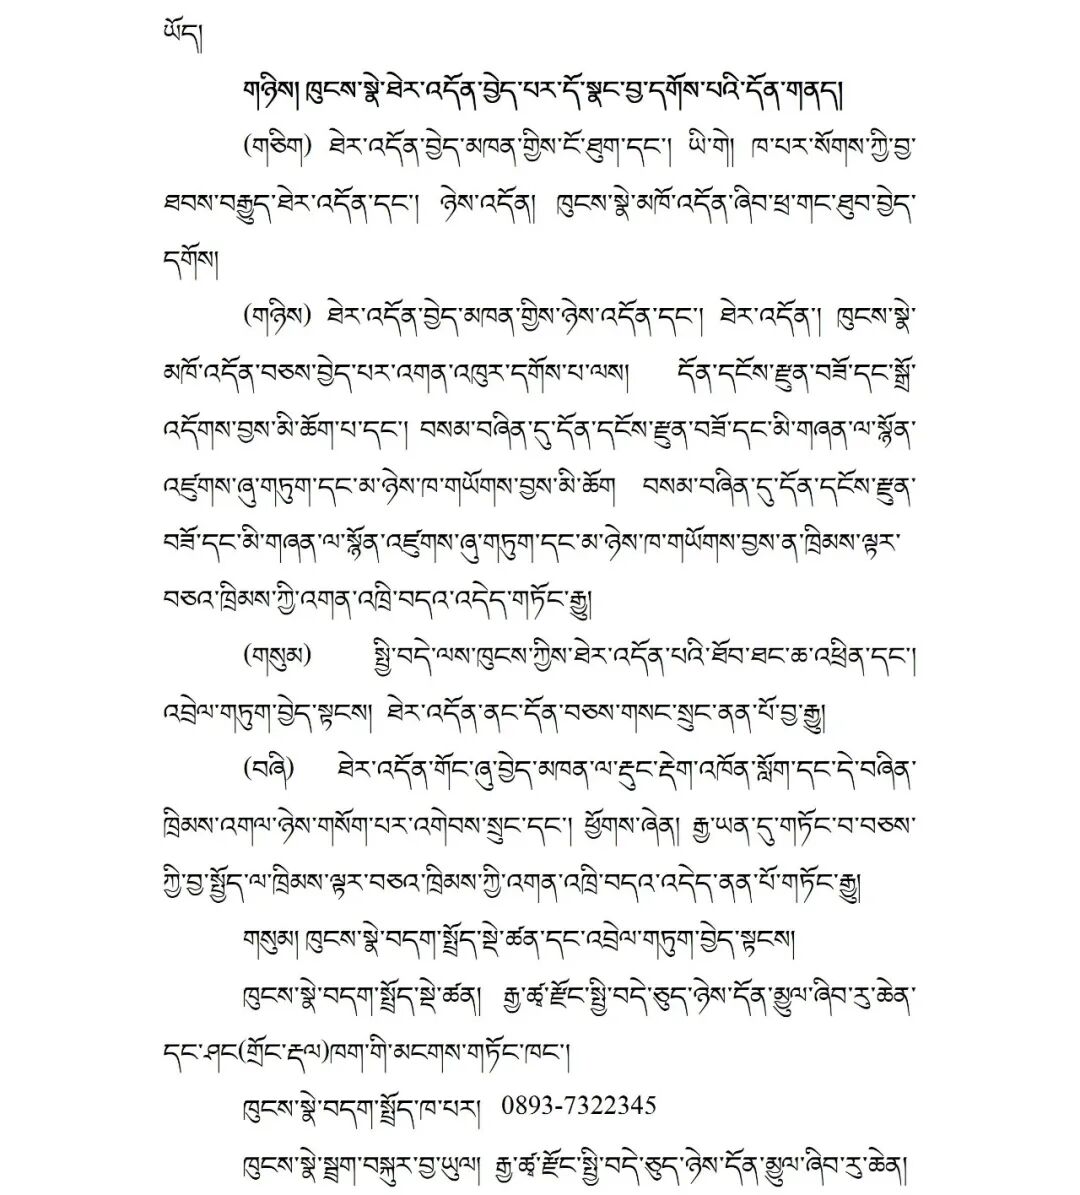 ཡོད།
གཉིས། ཁུངས་སྣེ་ཐེར་འདོན་བྱེད་པར་དོ་སྣང་བྱ་དགོས་པའི་དོན་གནད།
(གཅིག) ཐེར་འདོན་བྱེད་མཁན་གྱིས་ངོ་ཐུག་དང་། ཡི་གེ། ཁ་པར་སོགས་ཀྱི་བྱ་
ཐབས་བརྒྱུད་ཐེར་འདོན་དང་། ཉེས་འདོན། ཁུངས་སྣེ་མཁོ་འདོན་ཞིབ་ཕྲ་གང་ཐུབ་བྱེད་
དགོས།
(གཉིས) ཐེར་འདོན་བྱེད་མཁན་གྱིས་ཉེས་འདོན་དང་། ཐེར་འདོན་། ཁུངས་སྣེ་
མཁོ་འདོན་བཅས་བྱེད་པར་འགན་འཁུར་དགོས་པ་ལས། དོན་དངོས་རྫུན་བཟོ་དང་སྒྲོ་
འདོགས་བྱས་མི་ཆོག་པ་དང་། བསམ་བཞིན་དུ་དོན་དངོས་རྫུན་བཟོ་དང་མི་གཞན་ལ་སྙོན་
འཛུགས་ཞུ་གཏུག་དང་མ་ཉེས་ཁ་གཡོགས་བྱས་མི་ཆོག བསམ་བཞིན་དུ་དོན་དངོས་རྫུན་
བཟོ་དང་མི་གཞན་ལ་སྙོན་འཛུགས་ཞུ་གཏུག་དང་མ་ཉེས་ཁ་གཡོགས་བྱས་ན་ཁྲིམས་ལྟར་
བཅའ་ཁྲིམས་ཀྱི་འགན་འཁྲི་བདའ་འདེད་གཏོང་རྒྱུ།
(གསུམ) སྤྱི་བདེ་ལས་ཁུངས་ཀྱིས་ཐེར་འདོན་པའི་ཐོབ་ཐང་ཆ་འཕྲིན་དང་།
འབྲེལ་གཏུག་བྱེད་སྟངས། ཐེར་འདོན་ནང་དོན་བཅས་གསང་སྲུང་ནན་པོ་བྱ་རྒྱུ།
(བཞི) ཐེར་འདོན་གོང་ཞུ་བྱེད་མཁན་ལ་རྡུང་རྡེག་འཁོན་སློག་དང་དེ་བཞིན་
ཁྲིམས་འགལ་ཉེས་གསོག་པར་འགེབས་སྲུང་དང་། ཕྱོགས་ཞེན། རྒྱ་ཡན་དུ་གཏོང་བ་བཅས་
ཀྱི་བྱ་སྤྱོད་ལ་ཁྲིམས་ལྟར་བཅའ་ཁྲིམས་ཀྱི་འགན་འཁྲི་བདའ་འདེད་ནན་པོ་གཏོང་རྒྱུ།
གསུམ། ཁུངས་སྣེ་བདག་སྤྲོད་སྡེ་ཚན་དང་འབྲེལ་གཏུག་བྱེད་སྟངས།
ཁུངས་སྣེ་བདག་སྤྲོད་སྡེ་ཚན། རྒྱ་ཚྭ་རྫོང་སྤྱི་བདེ་ཅུད་ཉེས་དོན་མྱུལ་ཞིབ་རུ་ཆེན་
དང་ཤང(གྲོང་རྡལ)ཁག་གི་མངགས་གཏོང་ཁང་།
ཁུངས་སྣེ་བདག་སྤྲོད་ཁ་པར། 0893-7322345
ཁུངས་སྣེ་སྦྲག་བསྐུར་བྱ་ཡུལ། རྒྱ་ཚྭ་རྫོང་སྤྱི་བདེ་ཅུད་ཉེས་དོན་མྱུལ་ཞིབ་རུ་ཆེན།